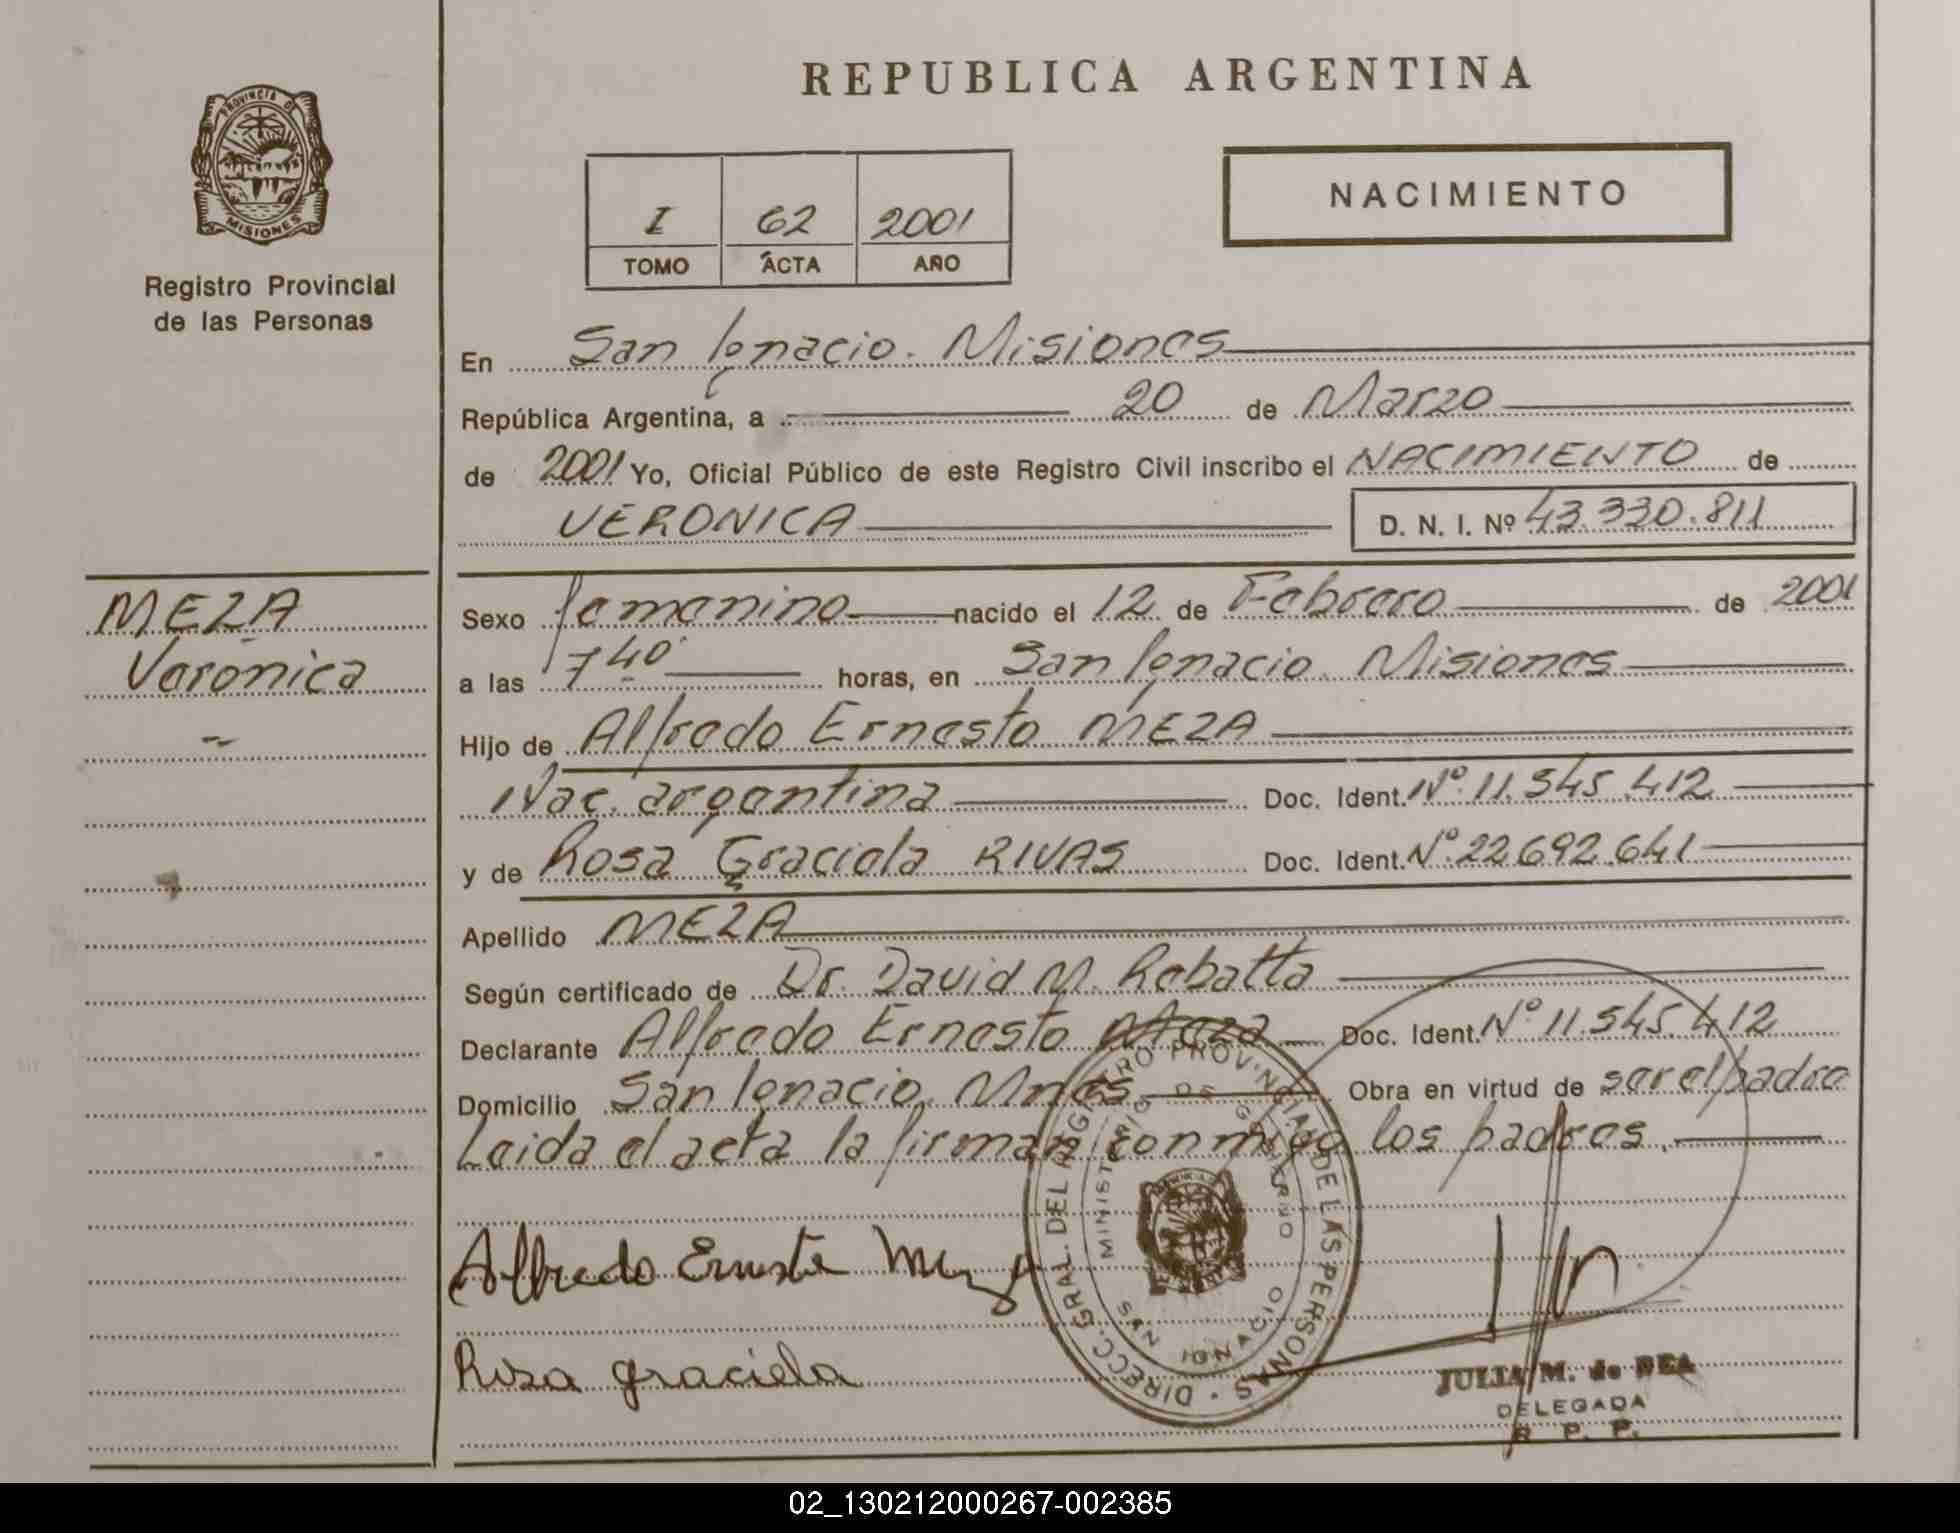 REPUBLICA ARGENTINA
PROVINCIA DE
MISIONES
Registro Provincial
de las Personas
I 62 2001
TOMO ACTA AÑO
NACIMIENTO
En San Ignacio. Misiones
República Argentina, a 20 de Marzo
de 2001 Yo, Oficial Público de este Registro Civil inscribo el NACIMIENTO de
VERONICA D. N. I. Nº 43.330.811
MEZA
Veronica
Sexo femenino nacido el 12 de Febrero de 2001
a las 7 40' horas, en San Ignacio. Misiones
Hijo de Alfredo Ernesto MEZA
Nac. argentina Doc. Ident. Nº 11.545.412
y de Rosa Graciela RIVAS Doc. Ident. Nº 22.692.641
Apellido MEZA
Según certificado de Dr. David M. Rebatta
Declarante Alfredo Ernesto Meza Doc. Ident. Nº 11.545.412
Domicilio San Ignacio. Mnes Obra en virtud de ser el padre
Leida el acta la firman conmigo los padres.
DIRECC. GRAL. DEL REGISTRO PROVINCIAL DE LAS PERSONAS
MINISTERIO DE GOBIERNO
SAN IGNACIO
Alfredo Ernesto Meza
Rosa graciela
JULIA M. de BEA
DELEGADA
R. P. P.
02_130212000267-002385